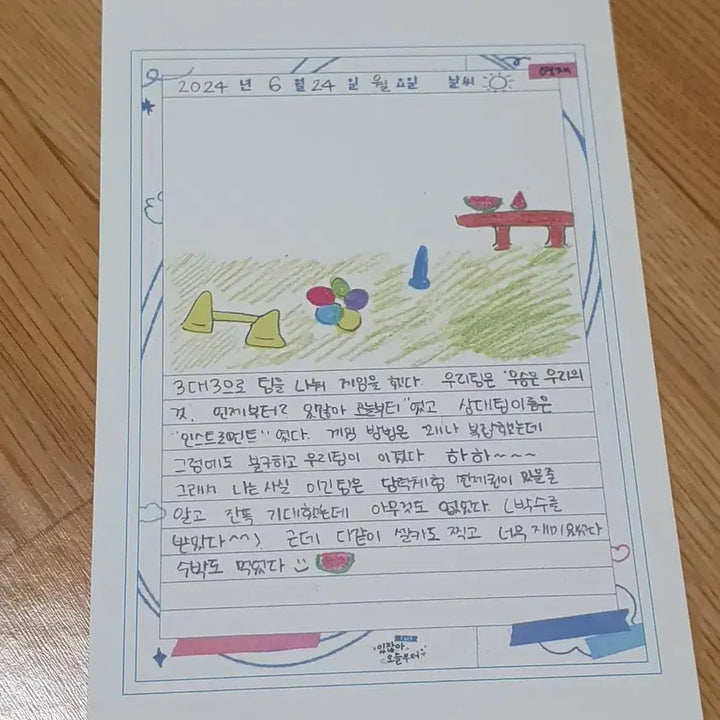 2024 년 6 월 24 일 월 요일 날씨
3대3으로 팀을 나눠 게임을 했다. 우리팀은 "우승은 우리의
것. 언제부터? 있잖아 오늘부터" 였고 상대팀이름은
"인스트루먼트" 였다. 게임 방법은 꽤나 복잡했는데
그럼에도 불구하고 우리팀이 이겼다 하하~~~
그래서 나는 사실 이긴팀은 담력체험 면제권이 있을줄
알고 잔뜩 기대했는데 아무것도 없었다 (박수를
받았다^^) 근데 다같이 셀카도 찍고 너무 재미있었다
수박도 먹었다
있잖아
오늘부터